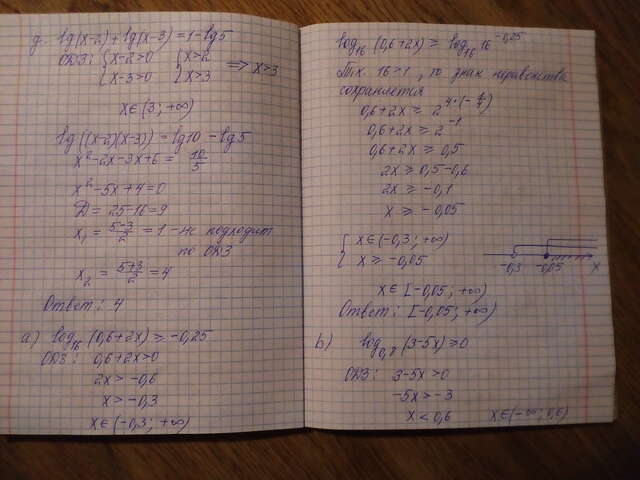 д. lg(x-2)+lg(x-3)=1-lg5
ОДЗ: {x-2>0 {x>2
{x-3>0 {x>3 => x>3
x∈(3; +∞)
lg((x-2)(x-3))=lg10-lg5
x²-2x-3x+6= 10/5
x²-5x+4=0
D=25-16=9
x₁= (5-3)/2 =1 - не подходит
по ОДЗ
x₂= (5+3)/2 =4
Ответ: 4
а) log₁₆(0,6+2x)≥-0,25
ОДЗ: 0,6+2x>0
2x>-0,6
x>-0,3
x∈(-0,3; +∞)
log₁₆(0,6+2x)≥log₁₆16^(-0,25)
Т.к. 16>1, то знак неравенства
сохраняется
0,6+2x≥2^(4·(-1/4))
0,6+2x≥2⁻¹
0,6+2x≥0,5
2x≥0,5-0,6
2x≥-0,1
x≥-0,05
{x∈(-0,3; +∞)
{x≥-0,05
-0,3 -0,05 x
x∈[-0,05; +∞)
Ответ: [-0,05; +∞)
b) log (3-5x)≥0
ОДЗ: 3-5x>0
-5x>-3
x<0,6 x∈(-∞; 0,6)